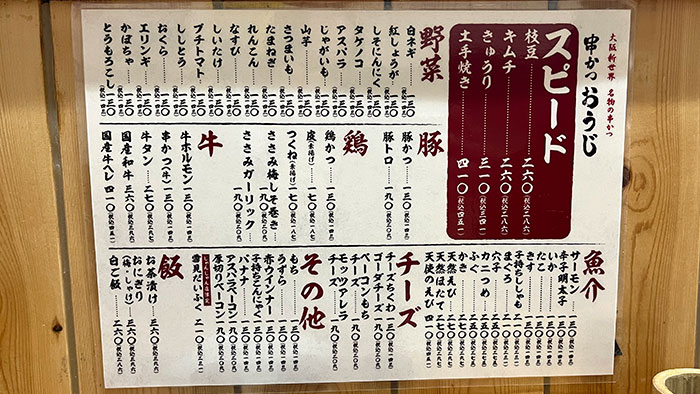 大阪新世界 名物の串かつ
串かつ おうじ
スピード
枝豆 二六〇(税込二八六)
キムチ 二六〇(税込二八六)
きゅうり 三一〇(税込三四一)
土手焼き 四一〇(税込四五一)
野菜
白ネギ 一三〇
紅しょうが 一三〇
しそにんにく 一三〇
タケノコ 一三〇
アスパラ 一三〇
じゃがいも 一三〇
山芋 一三〇
さつまいも 一三〇
たまねぎ 一三〇
れんこん 一三〇
なすび 一三〇
しいたけ 一三〇
プチトマト 一三〇
ししとう 一三〇
おくら 一三〇
エリンギ 一三〇
かぼちゃ 一三〇
とうもろこし 一三〇
豚
豚かつ 一三〇
豚トロ 一九〇
鶏
鶏かつ 一三〇
皮(素揚げ) 一七〇
つくね(素揚げ) 一七〇
ささみ梅しそ巻き 一九〇
ささみガーリック 一九〇
牛
牛ホルモン 一三〇
串かつ(牛) 一三〇
牛タン 二七〇
国産和牛 三六〇
国産牛ヘレ 四一〇
魚介
サーモン
辛子明太子
いか
たこ
きす
子持ちししゃも
まぐろ
穴子
カニつめ
ふぐ
かき
天然えび
天然ほたて
天使のえび 四一〇
チーズ
チーズちくわ 一三〇
ゴーダチーズ 一九〇
ベーコンもちチーズ 一九〇
モッツァレラチーズ 一九〇
その他
もち
うずら
赤ウインナー
子持ちこんにゃく
バナナ
アスパラベーコン
厚切りベーコン 一九〇
雪見だいふく 二一〇
飯
お茶漬け 三六〇
おにぎり(梅・しゃけ) 三六〇
白ご飯 二六〇